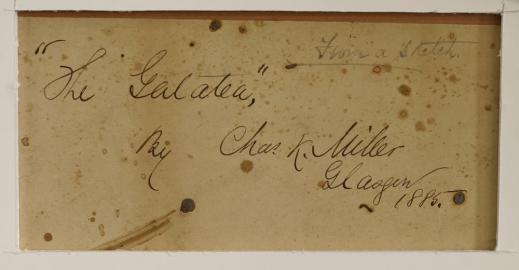 From a Sketch.
"The Galatea,"
By Chas. K. Miller
Glasgow
1885.